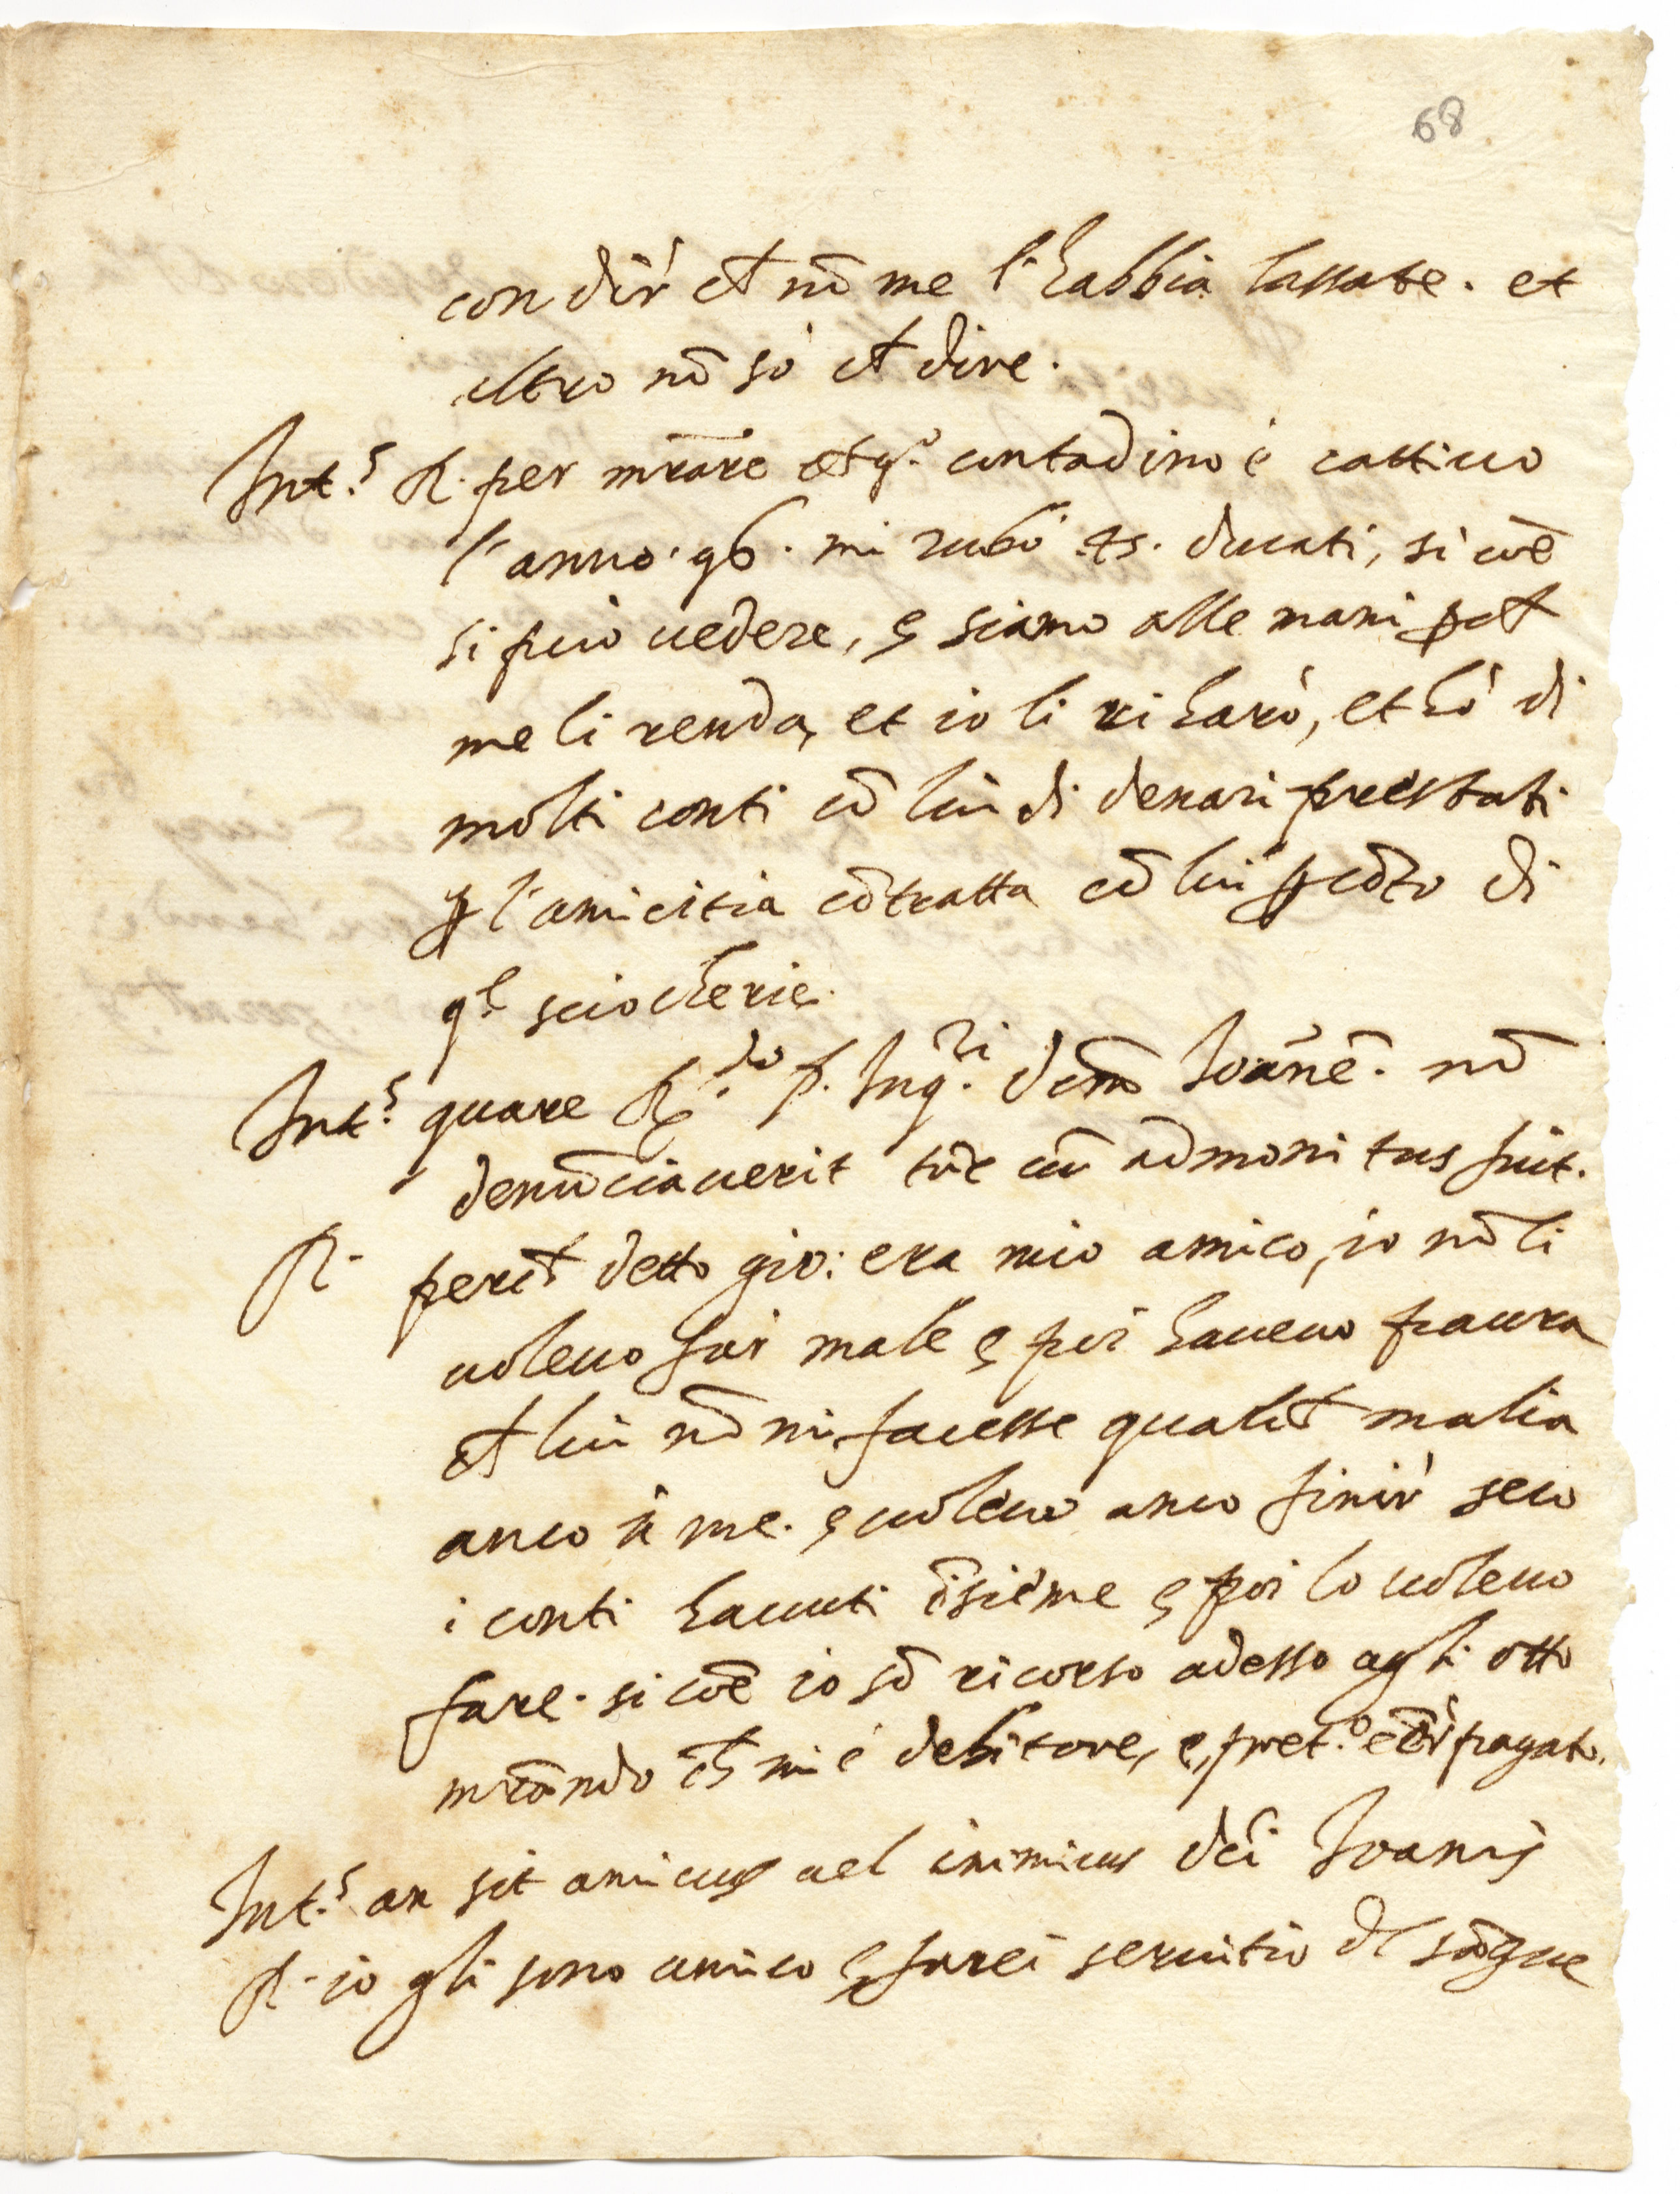 68
con dir' ch nō me l'habbia lassate. et
altro nō só ch dire.
Int.s R. per mr̄are ch q.o contadino é cattiuo
l'anno. 96. mi rubó 45. ducati, sì cōē
si può uedere, e siamo alle mani p ch
me li renda, et io li riharò, et hò di
molti conti cō lui di denari prestati
p l'amicitia cōtratta cō lui p cōto di
q.e sciocherie.
Int.s quare R.do P. Inq.ri dcm̄ Ioānē. nō
denūciauerit tūc cū admonitus fuit.
R. perch detto gio: era mio amico, io nō li
uoleuo far male e poi haueuo paura
ch lui nō mi facesse qualch malia
anco à me. e uoleuo anco finir' seco
i conti hauuti īsieme e poi lo uoleuo
fare. si cōē io sō ricorso adesso agli otto
mr̄ando ch mi é debitore, e pret.o eēr' pagato.
Int.s an sit amicus uel inimicus dci Ioanis
R. io gli sono amico e farei seruitio di sāgue